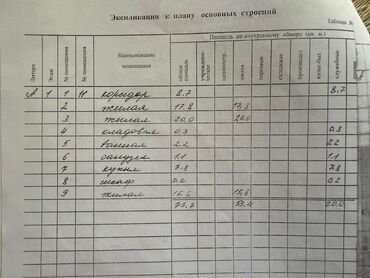 Экспликация к плану основных строений
Таблица №
Литера
Этаж
№ помещения
№ помещения
Наименование помещения
Площадь по внутреннему обмеру (кв. м.)
общая площадь
учрежденческие
администр.
жилая
торговые
складские
производст
культ-быт.
служебные
А 1 1 коридор 8,7 8,7
2 жилая 17,8 17,8
3 жилая 20,0 20,0
4 кладовая 0,3 0,3
5 ванная 2,2 2,2
6 санузел 1,1 1,1
7 кухня 7,8 7,8
8 шкаф 0,2 0,2
9 жилая 15,6 15,6
73,7 53,4 20,0